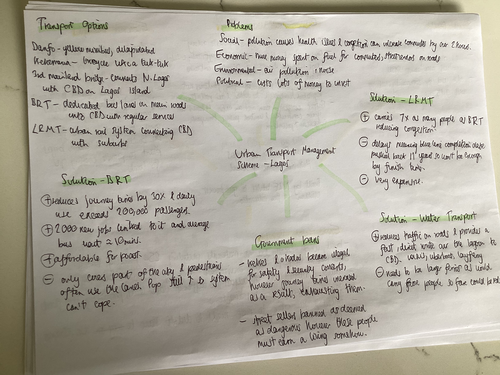 Transport Options
Danfo - yellow minibus, dilapidated
Kekenapep - tricycle like a tuk-tuk
3rd mainland bridge - connects N. Lagos
with CBD on Lagos Island
BRT - dedicated bus lane on main roads
CBD with regular services
LRMT - urban rail system connecting CBD
with suburbs
Problems
Social - pollution causes health issues & congestion can increase commutes by over 2 hours.
Economic - more money spent on fuel for commutes, on roads
Environmental - air pollution, noise
Political - costs lots of money to invest
Solution - LRMT
+ carries 7x as many people as BRT
reducing congestion
- delays meaning blue line completion date
pushed back years so won't be enough
by finish time.
- very expensive.
Urban Transport Management
Scheme - Lagos
Solution - BRT
+ reduces journey times by 30% & daily
use exceeds 200,000 passengers.
+ 2000 new jobs linked to it and average
bus wait = 10min.
+ affordable for poorest.
- only covers part of the city & pedestrians
often use the lanes. Pop still ↑ so system
can't cope.
Government bans
- kekes & okadas became illegal
for safety & security concerns,
however journey times increased
as a result, exhausting them.
- street sellers banned as deemed
as dangerous however these people
must earn a living somehow.
Solution - Water Transport
+ reduces traffic on roads & provides a
fast, direct route over the lagoon to
CBD.
- needs to be large ferries as would
carry more people &